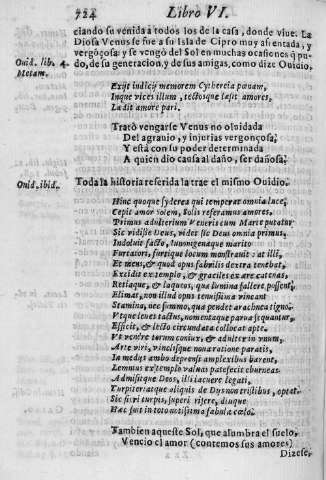 724 Libro VI.
ciando su venida à todos los de la casa, donde viue. La
Diosa Venus se fue a su Isla de Cipro muy afrentada, y
vergōçosa: y se vengò del Sol en muchas ocasiones q̄ pu-
Ouid. lib. 4. do, de su generacion, y de sus amigas, como dize Ouidio.
Metam.
Exijt indicij memorem Cythereia pœnam,
Inque vices illum, tectosque læsit amores,
Lædit amore pari.
Tratò vengarse Venus no oluidada
Del agrauio, y injurias vergonçosa,
Y està con su poder determinada
A quien dio causa al daño, ser dañosa.
Ouid. ibid. Toda la historia referida la trae el mismo Ouidio.
Hinc quoque sydereà qui temperat omnia luce,
Cepit amor solem, solis referamus amores.
Primus adulterium Veneris cum Marte putatur
Sic vidisse Deus, videt sic Deus omnia primus,
Indoluit facto, Iunonigenaque marito
Furta tori, furtique locum monstrauit: at illi,
Et mens, & quod opus fabrilis dextra tenebat,
Excidit extemplo, & graciles ex ære catenas,
Retiaque, & laqueos, quæ lumina fallere possent,
Elimat, non illud opus tenuissima vincant
Stamina, nec summo, quæ pendet aranea tigno.
Vtque leues tactus, momentaque parua sequantur,
Efficit, & lecto circundata collocat apte.
Vt venere torum coniux, & adulter in vnum,
Arte viri, vinclisque noua ratione paratis,
In medijs ambo deprensi amplexibus hærent,
Lemnus extemplo valuas patefecit eburneas
Admisitque Deos, illi iacuere legati,
Turpiter atque aliquis de Dijs non tristibus, optat.
Sic fieri turpis, superi risere, diuque
Hæc fuit in toto notissima fabula cœlo.
Tambien aqueste Sol, que alumbra el suelo,
Vencio el amor (contemos sus amores)
Dizese,